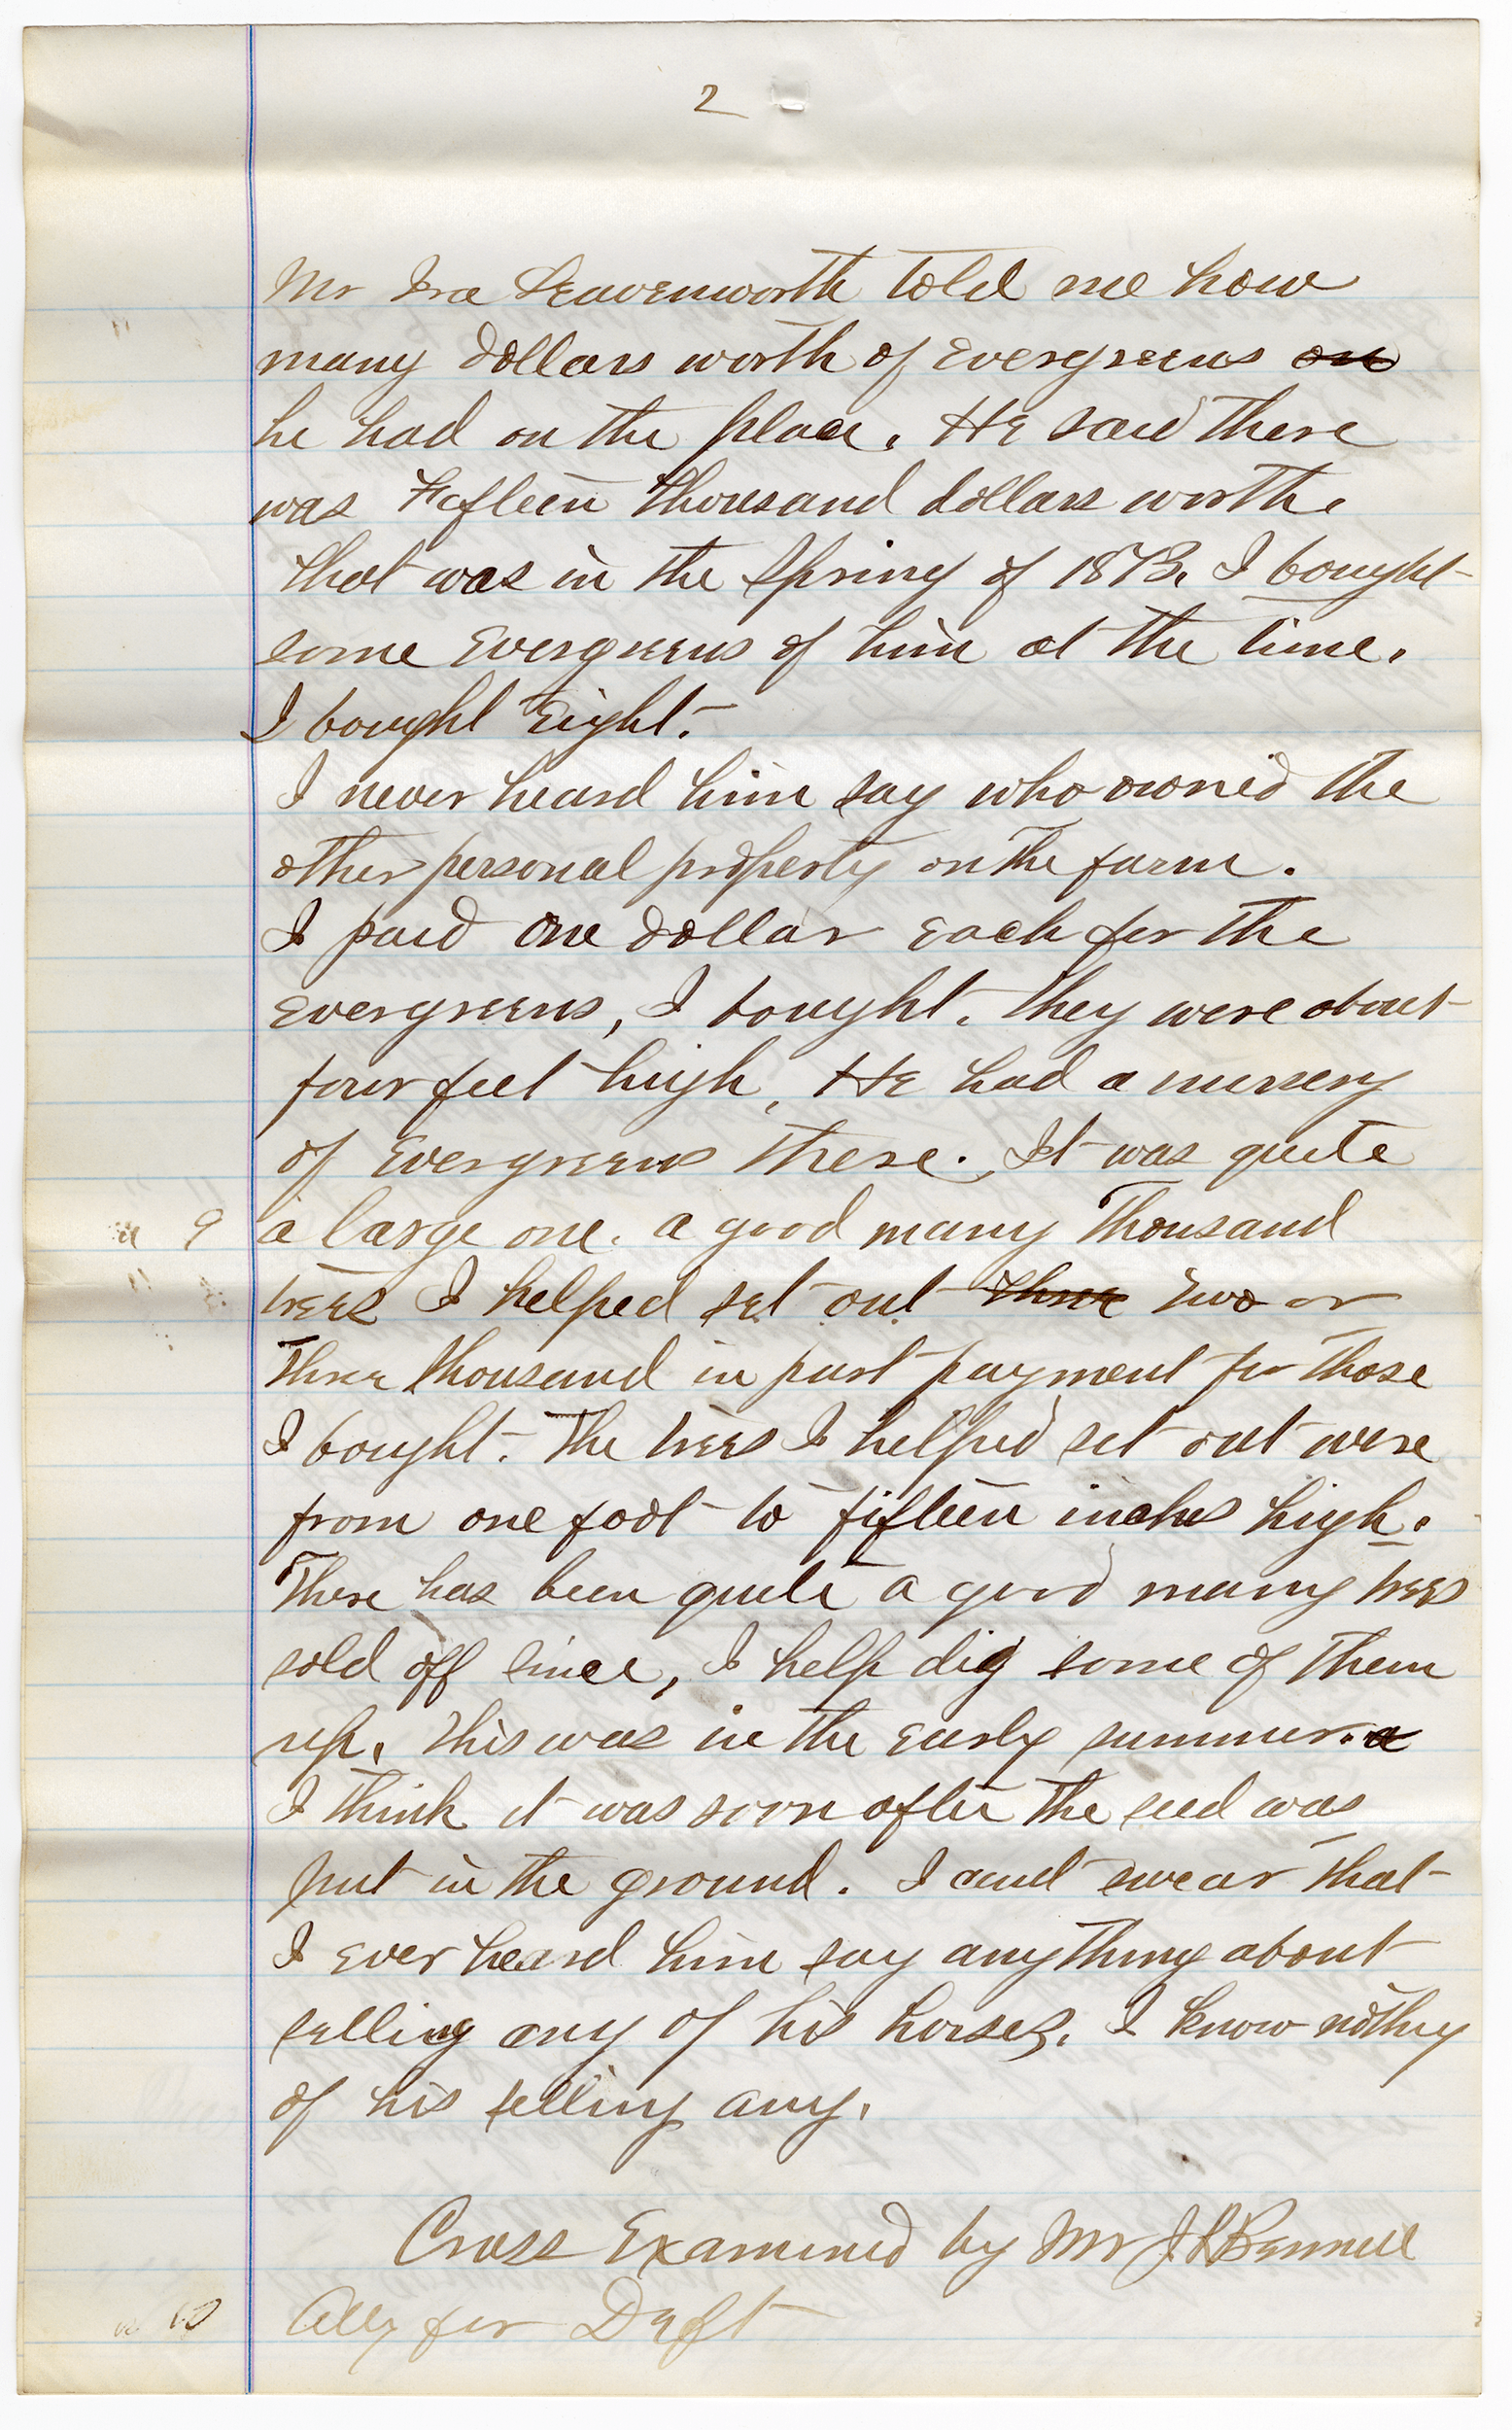 2
Mr Ira Leavenworth told me how
many dollars worth of Evergreens on
he had on the place. He said there
was Fifteen thousand dollars worth.
that was in the Spring of 1873. I bought
some Evergreens of him at the time.
I bought Eight.
I never heard him say who owned the
other personal property on the farm.
I paid One dollar Each for the
Evergreens, I bought. they were about
four feet high, He had a nursery
of Evergreens there. It was quite
9 a large one. a good many Thousand
trees I helped set out three two or
Three thousand in part payment for those
I bought. The trees I helped set out were
from one foot to fifteen inches high.
There has been quite a good many trees
sold off since, I help dig some of them
up. This was in the Early summer. a
I think it was soon after the seed was
put in the ground. I cant swear that
I Ever heard him say anything about
selling any of his horses. I know nothing
of his selling any.
Cross Examined by Mr Bennett
10 Atty for Deft